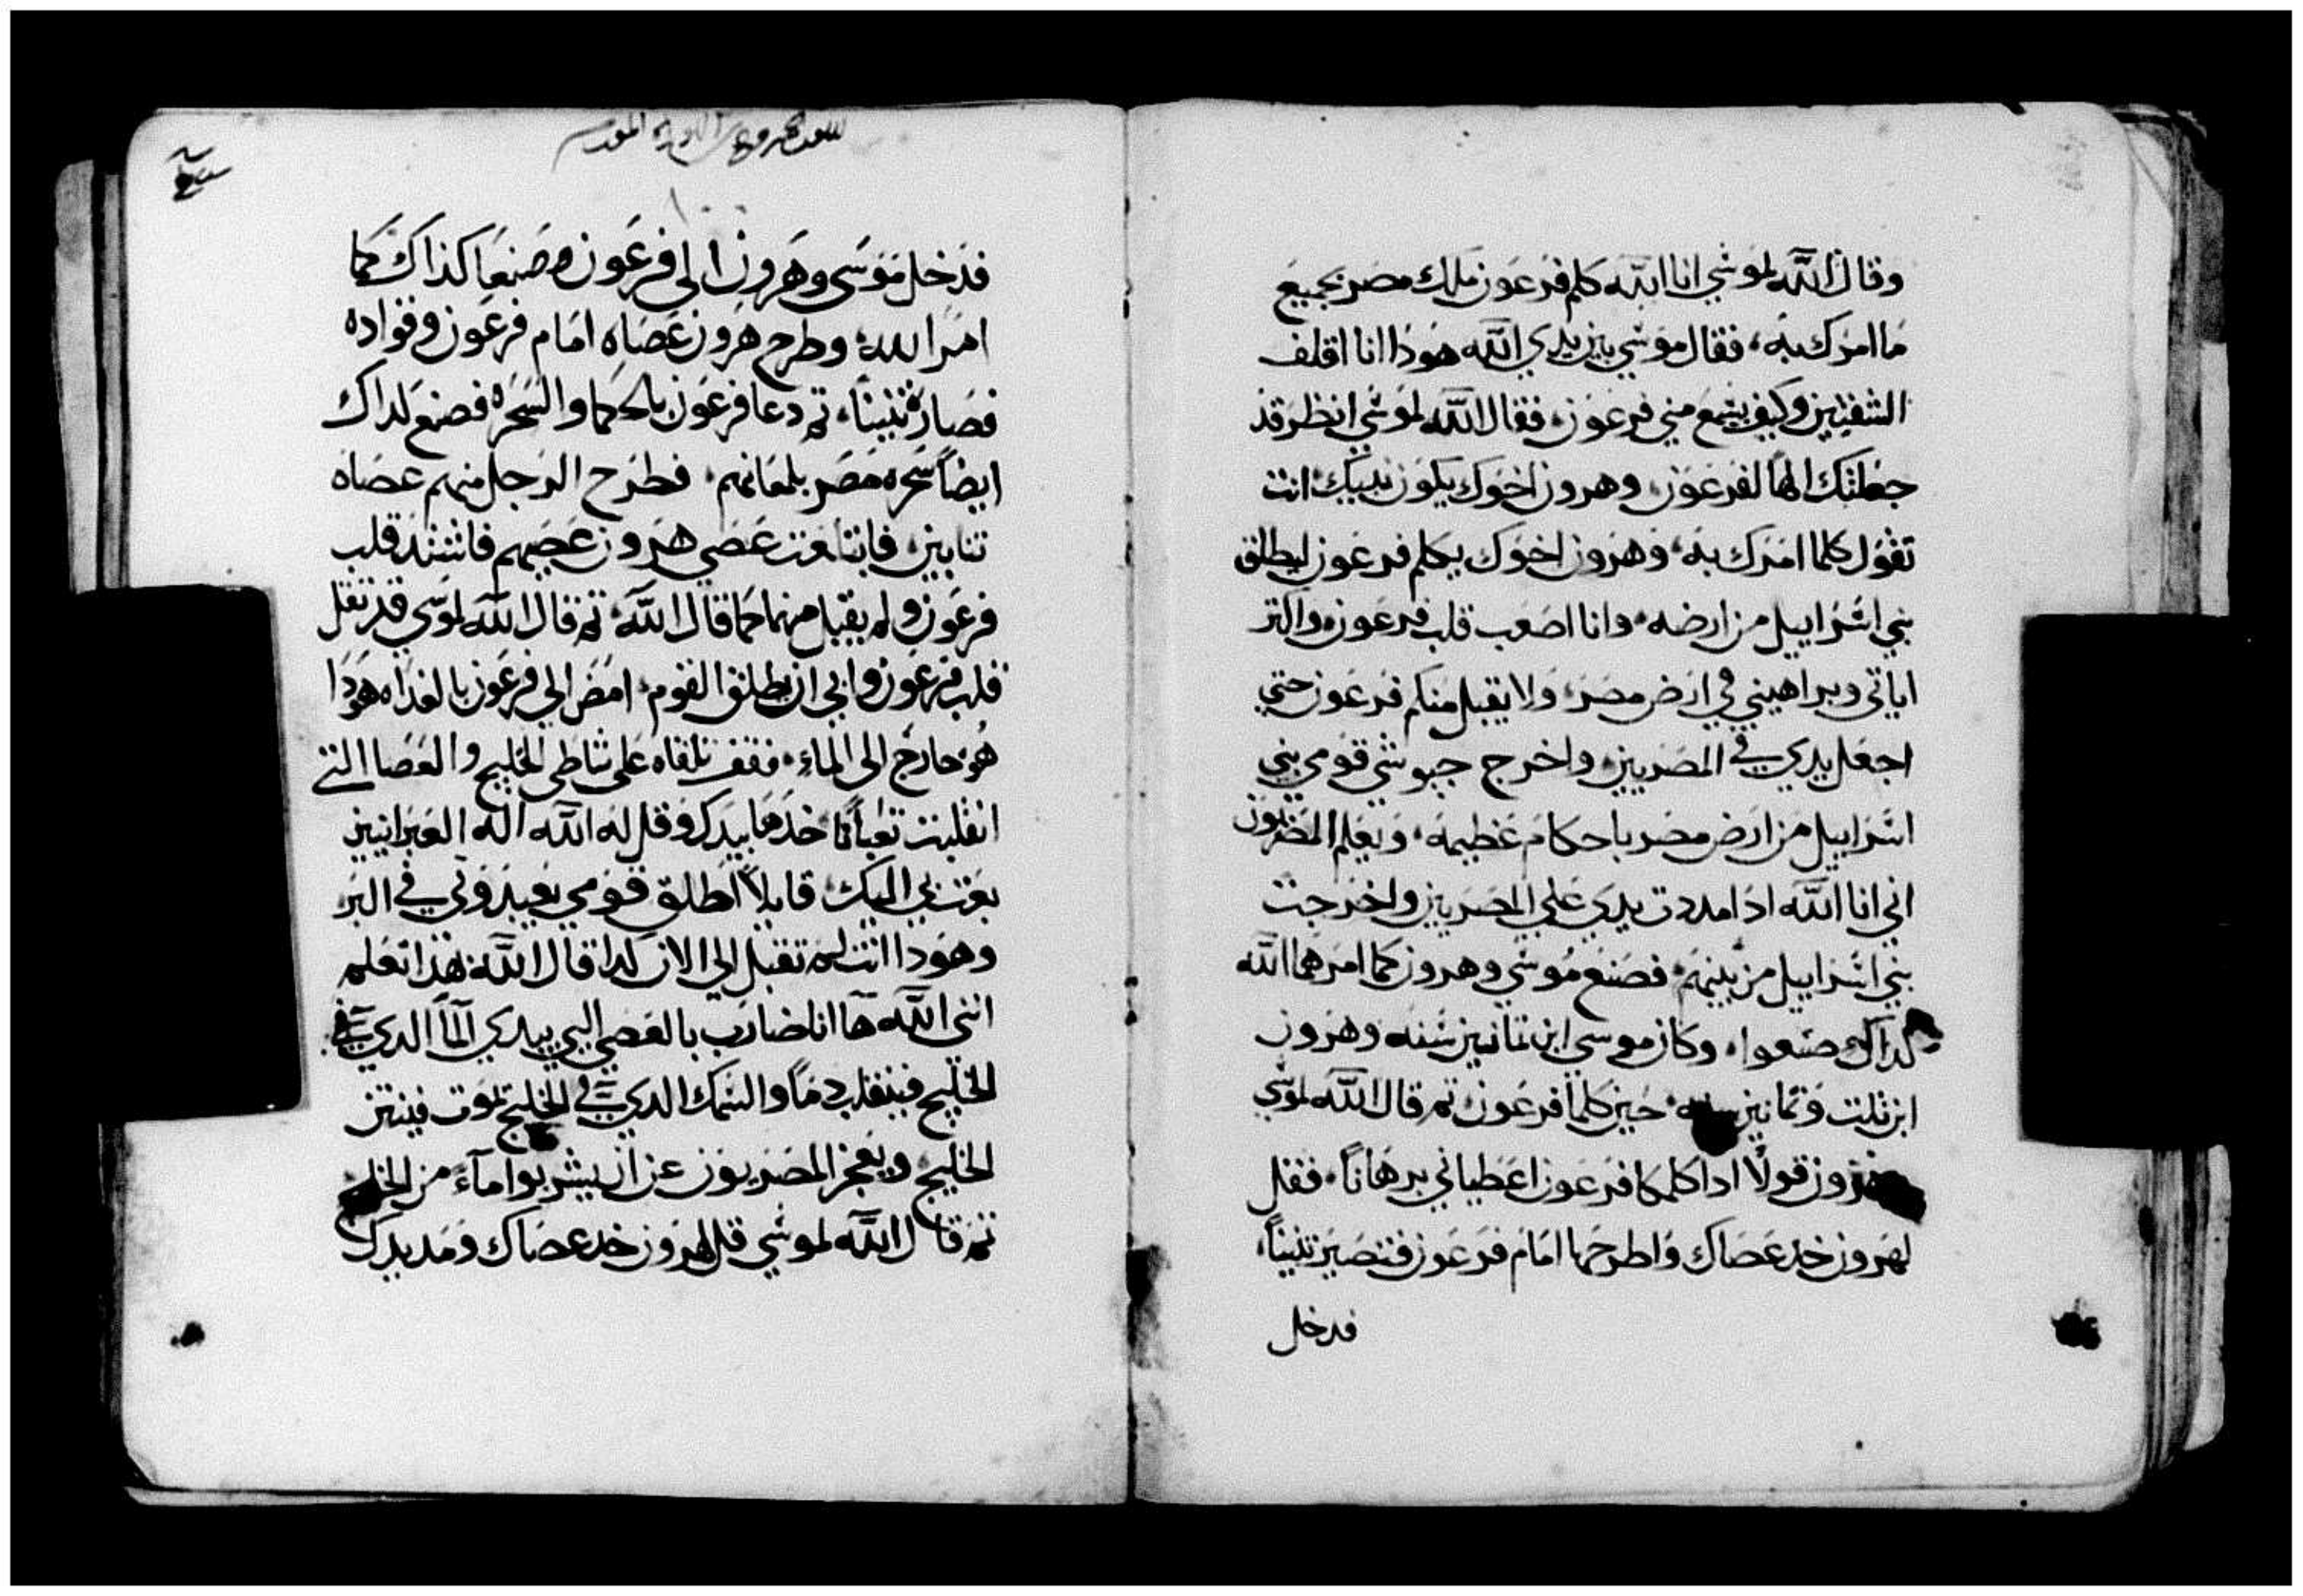 وقال الله لموسي انا الله كلم فرعون ملك مصر بجميع
ما امرك به، فقال موسي بين يدي الله هودا انا اقلف
الشفتين وكيف يسمع مني فرعون، فقال الله لموسي انظر قد
جعلتك الهًا لفرعون وهرون اخوك يكون نبيك انت
تقول كلما امرك به، وهرون اخوك يكلم فرعون ليطلق
بني اسراييل من ارضه، وانا اصعب قلب فرعون واكتر
اياتي وبراهيني في ارض مصر، ولا يقبل منكم فرعون حتي
اجعل يدي في المصريين واخرج جيوشي قومي بني
اسراييل من ارض مصر باحكام عظيمه، ويعلم المصريون
اني انا الله ادا مددت يدي علي المصريين واخرجت
بني اسراييل من بينهم، فصنع موسي وهرون كما امرهما الله
كداك صنعوا، وكان موسي ابن تمانين سنه وهرون
ابن تلت وتمانين سنه، حين كلما فرعون، تم قال الله لموسي
وهرون قولًا ادا كلمكما فرعون اعطياني برهانًا، فقل
لهرون خد عصاك واطرحها امام فرعون فتصير تنينًا،
فدخل
فدخل موسى وهرون الى فرعون وصنعا كذاك كما
امر الله، وطرح هرون عصاه امام فرعون وقواده
فصارة تنينًا، تم دعا فرعون بالحكما والسحره فصنع كداك
ايضًا سحره مصر بلمعانهم، فطرح الرجل منهم عصاه
تنابين، فابتلعت عصي هرون عصيهم فاشتد قلب
فرعون ولم يقبل منهما كما قال الله، تم قال الله لموسي قد تقل
قلب فرعون وابي ان يطلق القوم، امض الي فرعون بالغداه هودا
هو خارج الى الماء، فقف تلقاه على شاطى الخليج والعصا التي
انقلبت تعبانًا خدها بيدك وقل له الله اله العبرانيين
بعتني اليك، قايلًا اطلق قومي يعبدوني في البر
وهودا انت لم تقبل الي الان كدا قال الله بهذا تعلم
انني الله ها انا ضارب بالعصي التي بيدي المآ الدي في
الخليج فينقلب دمًا والسمك الدي في الخليج تموت فينتن
الخليج، ويعجز المصريون عن ان يشربوا مآء من الخليج
تم قال الله لموسي قل لهرون خد عصاك ومد يدك